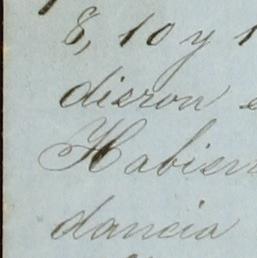 8, 10 y 1
dieron e
Habien
dancia